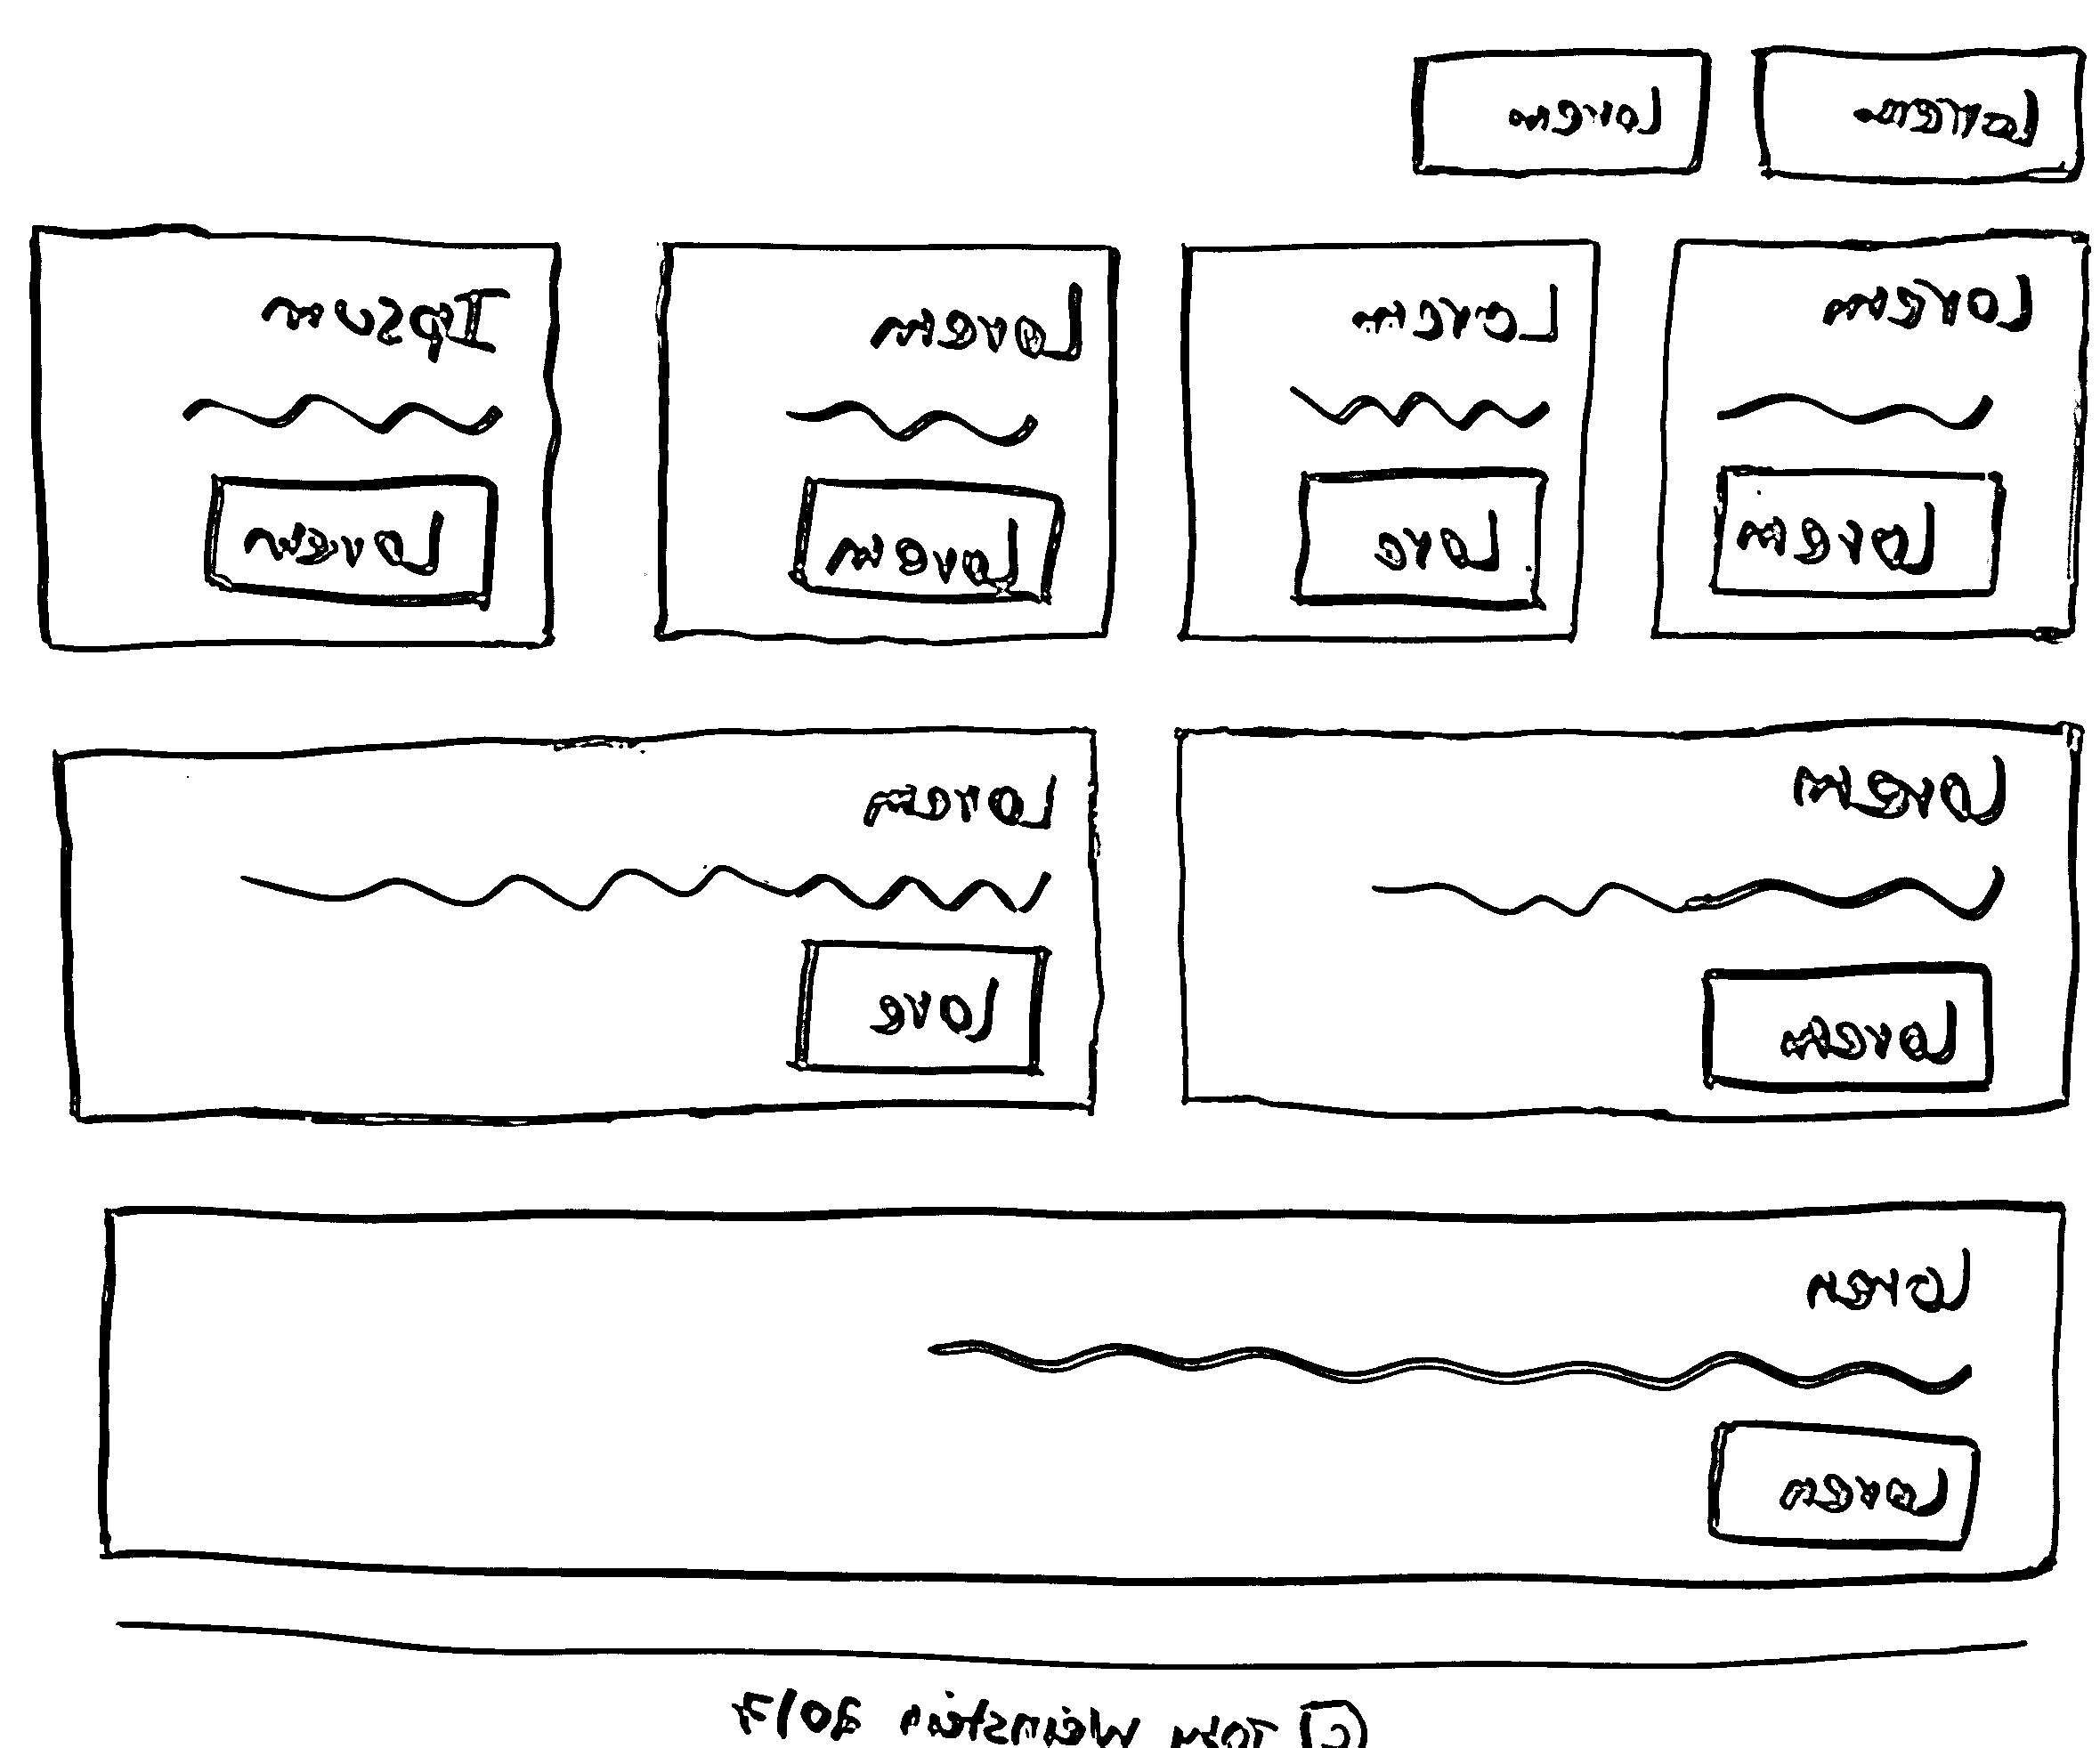 Lorem Lorem
Lorem Lorem Lorem Ipsum
Lorem Lore Lorem Lorem
Lorem Lorem
Lorem Lore
Loren
Loren
© Weinstein 2017